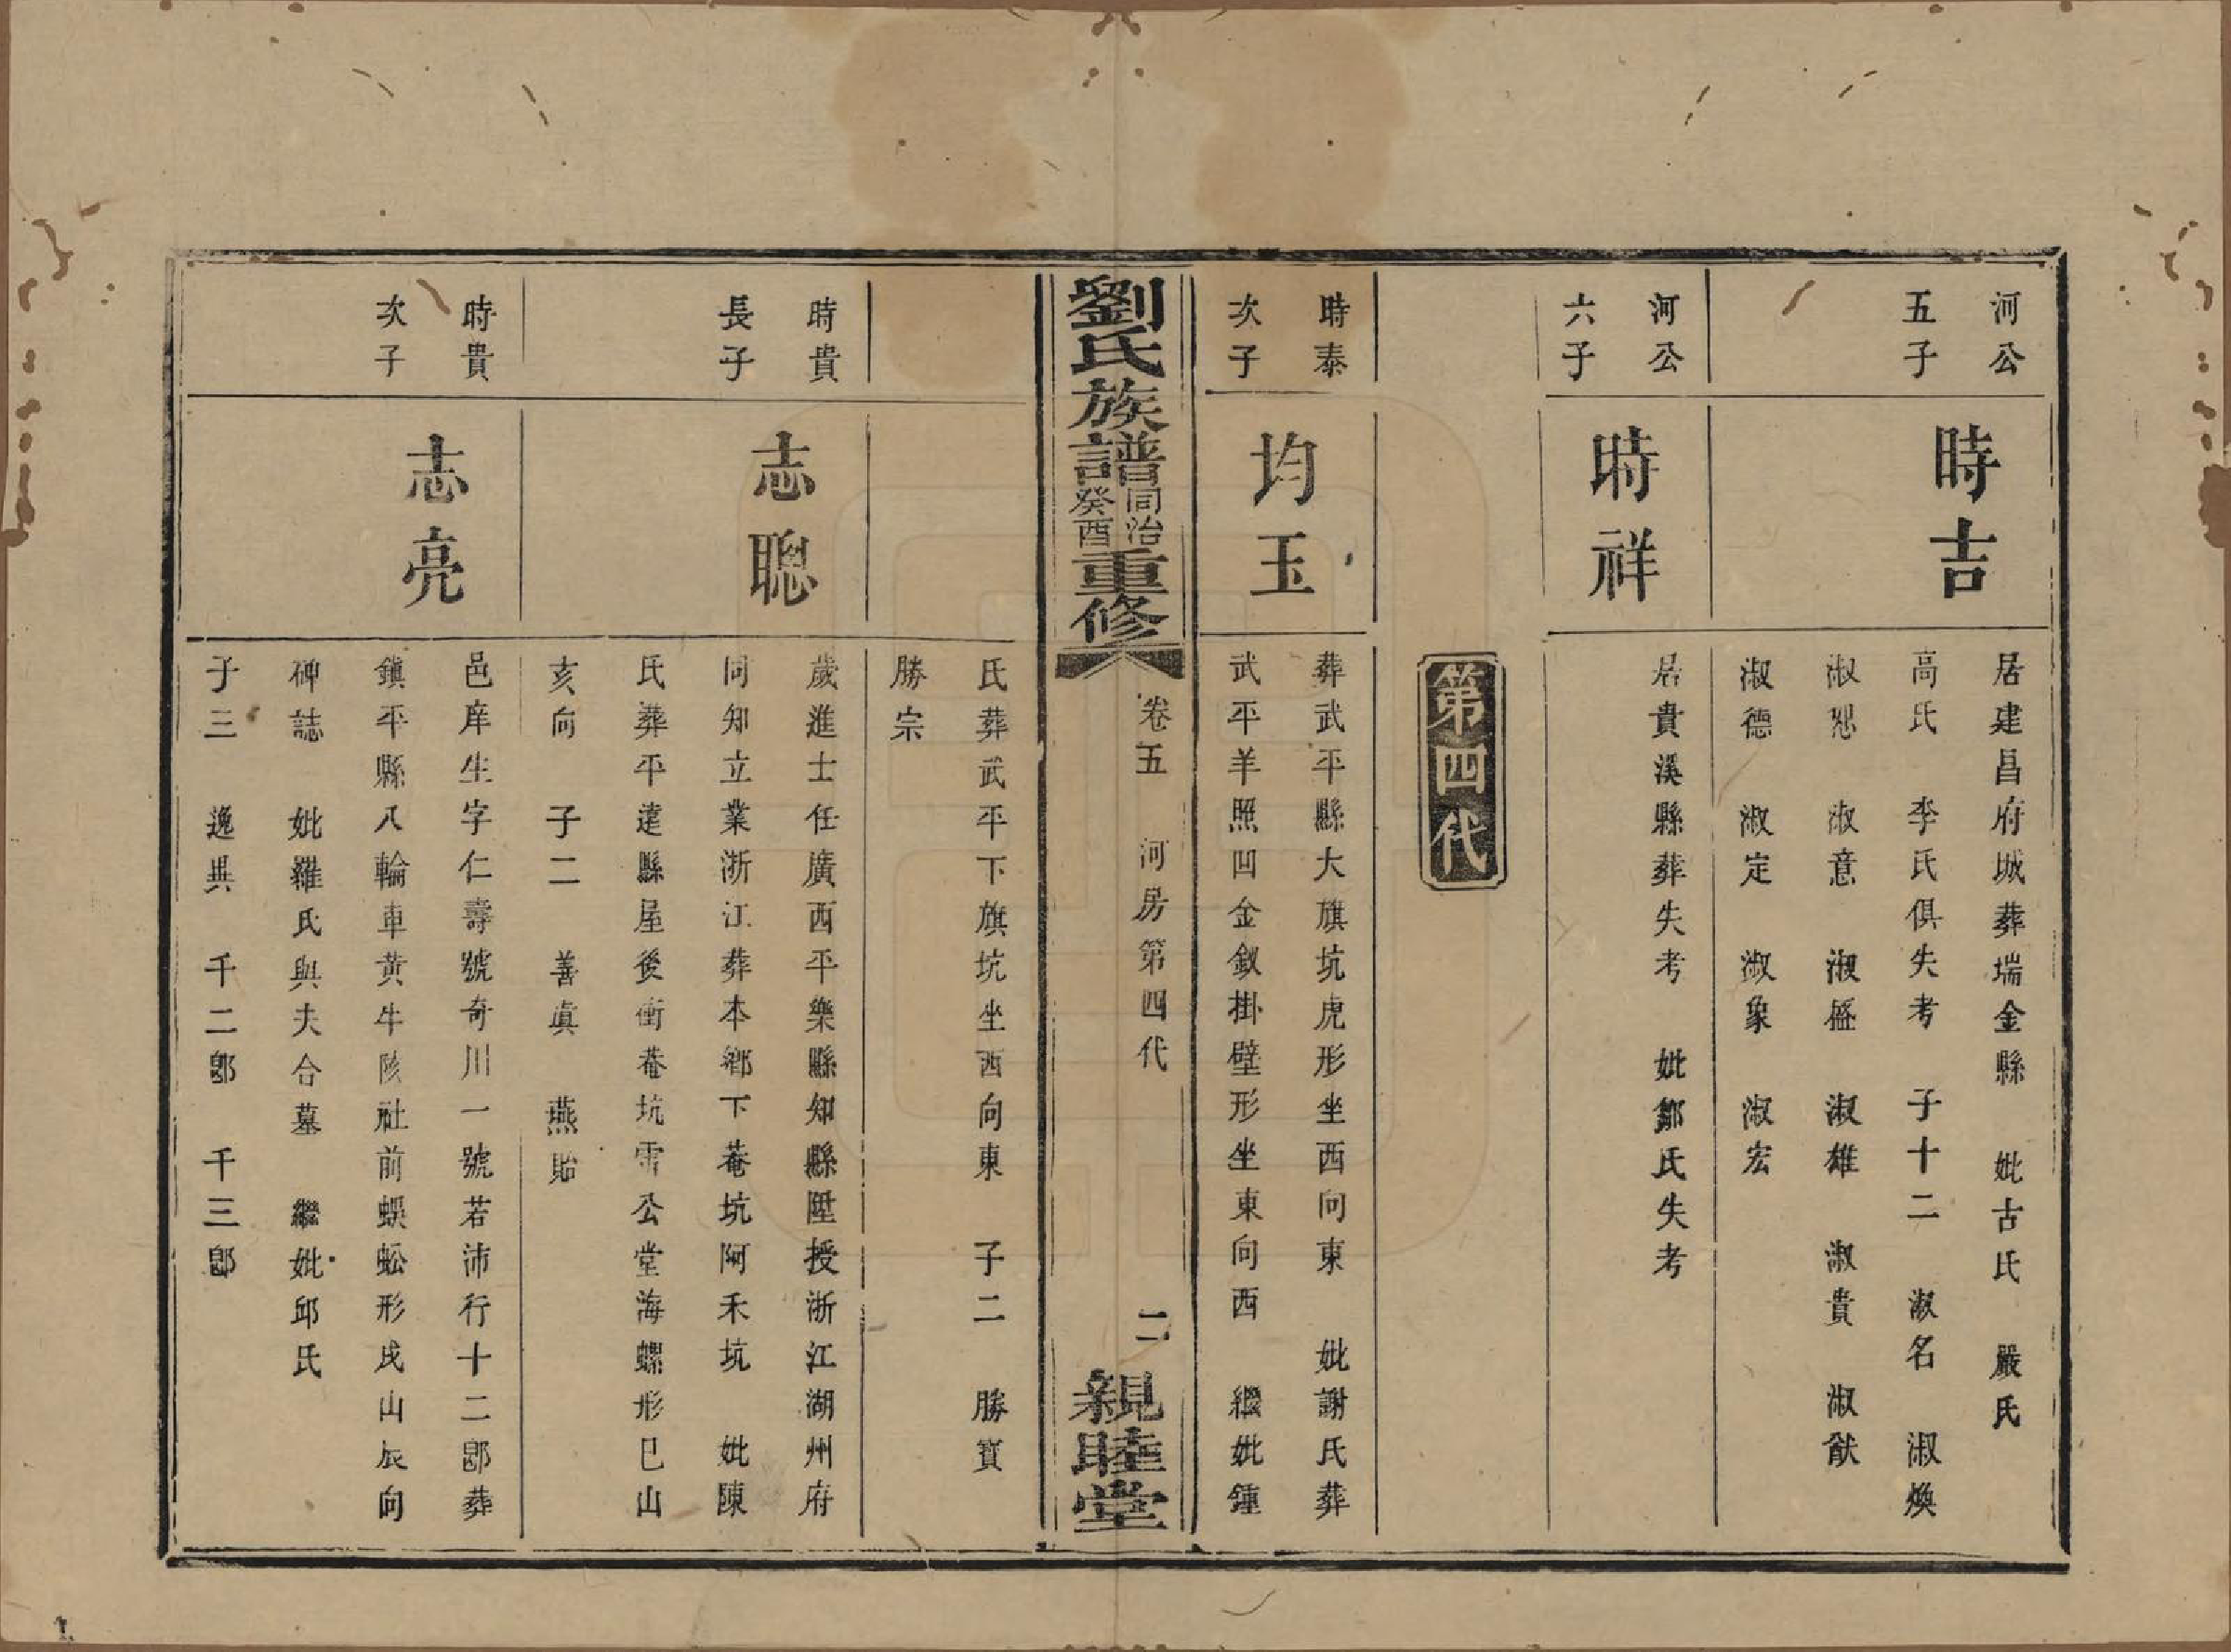 河公
五子
時吉
居建昌府城葬瑞金縣 妣古氏 嚴氏
高氏 李氏俱失考 子十二 淑名 淑煥
淑恕 淑意 淑盛 淑雄 淑貴 淑猷
淑德 淑定 淑象 淑宏
河公
六子
時祥
居貴溪縣葬失考 妣鄒氏失考
第四代
時泰
次子
均玉
葬武平縣大旗坑虎形坐西向東 妣謝氏葬
武平羊照凹金釵掛壁形坐東向西 繼妣鍾
劉氏族譜同治癸酉重修
卷五 河房第四代 二
親睦堂
氏葬武平下旗坑坐西向東 子二 勝寳
勝宗
時貴
長子
志聰
歲進士任廣西平樂縣知縣陞授浙江湖州府
同知立業浙江葬本鄉下菴坑阿禾坑 妣陳
氏葬平遠縣屋後衝菴坑雷公堂海螺形巳山
亥向 子二 善眞 燕貽
時貴
次子
志亮
邑庠生字仁壽號奇川一號若沛行十二郎葬
鎮平縣八輪車黄牛陔社前蜈蚣形戌山辰向
碑誌 妣羅氏與夫合墓 繼妣邱氏
子三 逸興 千二郎 千三郎